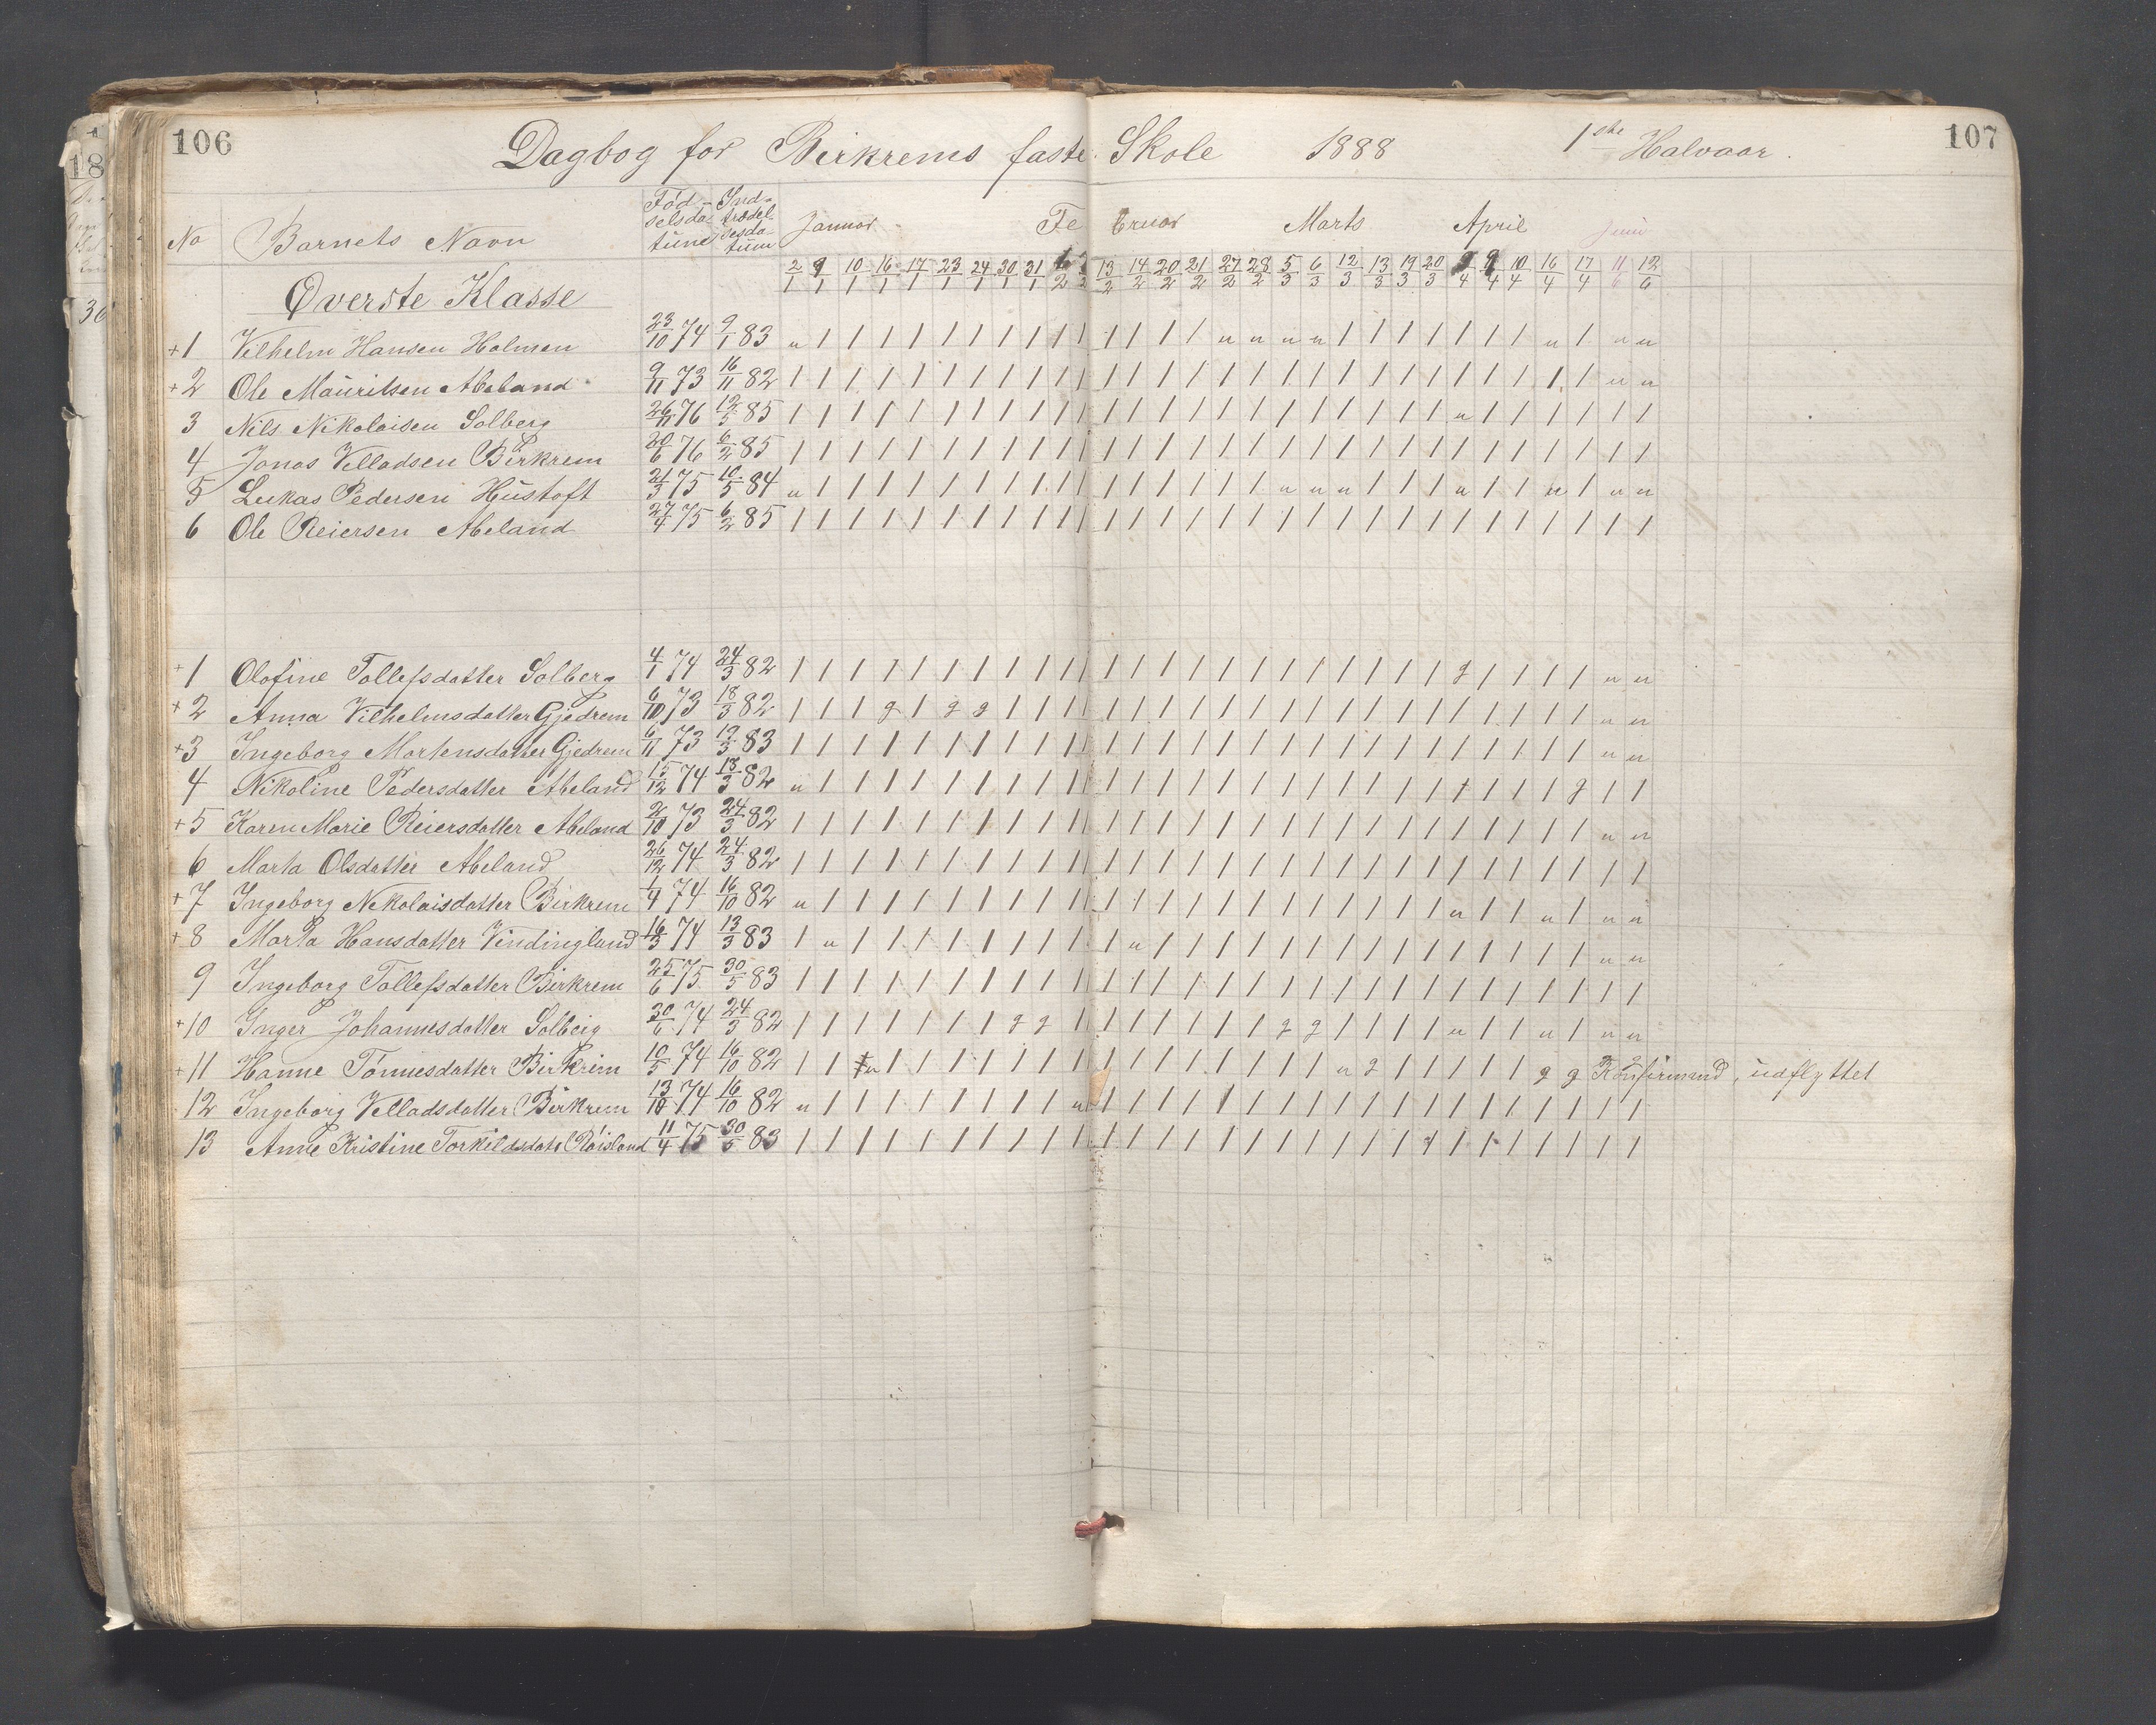 106
Dagbog for Birkrems faste Skole 1888 1ste Halvaar.
107
No Barnets Navn Fød-selsda-tum Ind-trædel-sesda-tum Januar Februar Marts April Juni
2/1 9/1 10/1 16/1 17/1 23/1 24/1 30/1 31/1 6/2 13/2 14/2 20/2 21/2 27/2 28/2 5/3 6/3 12/3 13/3 19/3 20/3 9/4 10/4 16/4 17/4 11/6 12/6
Øverste Klasse
+1 Vilhelm Hansen Holmen 23/10 74 9/1 83
+2 Ole Mauritsen Abeland 9/11 73 16/11 82
3 Nils Nikolaisen Solberg 26/11 76 12/5 85
4 Jonas Velladsen Birkrem 20/6 76 6/2 85
5 Lukas Pedersen Hustoft 21/3 75 10/5 84
6 Ole Reiersen Abeland 27/4 75 6/2 85
+1 Olofine Tollefsdatter Solberg 4/1 74 24/3 82
+2 Anna Vilhelmsdatter Gjedrem 6/10 73 18/3 82
+3 Ingeborg Mortensdatter Gjedrem 6/11 73 13/3 83
4 Nikoline Pedersdatter Abeland 15/12 74 18/3 82
+5 Karen Marie Reiersdatter Abeland 2/10 73 24/3 82
6 Marta Olsdatter Abeland 26/12 74 24/3 82
+7 Ingeborg Nikolaisdatter Birkrem 1/4 74 16/10 82
+8 Marta Hansdatter Vindingland 16/3 74 13/3 83
9 Ingeborg Tollefsdatter Birkrem 25/6 75 30/5 83
+10 Inger Johannesdatter Solberg 30/6 74 24/3 82
+11 Hanne Tønnesdatter Birkrem 10/5 74 16/10 82 Konfirmend, udflyttet
12 Ingeborg Velladsdatter Birkrem 13/10 74 16/10 82
13 Anne Kristine Torkildsdatr Røisland 11/4 75 30/5 83